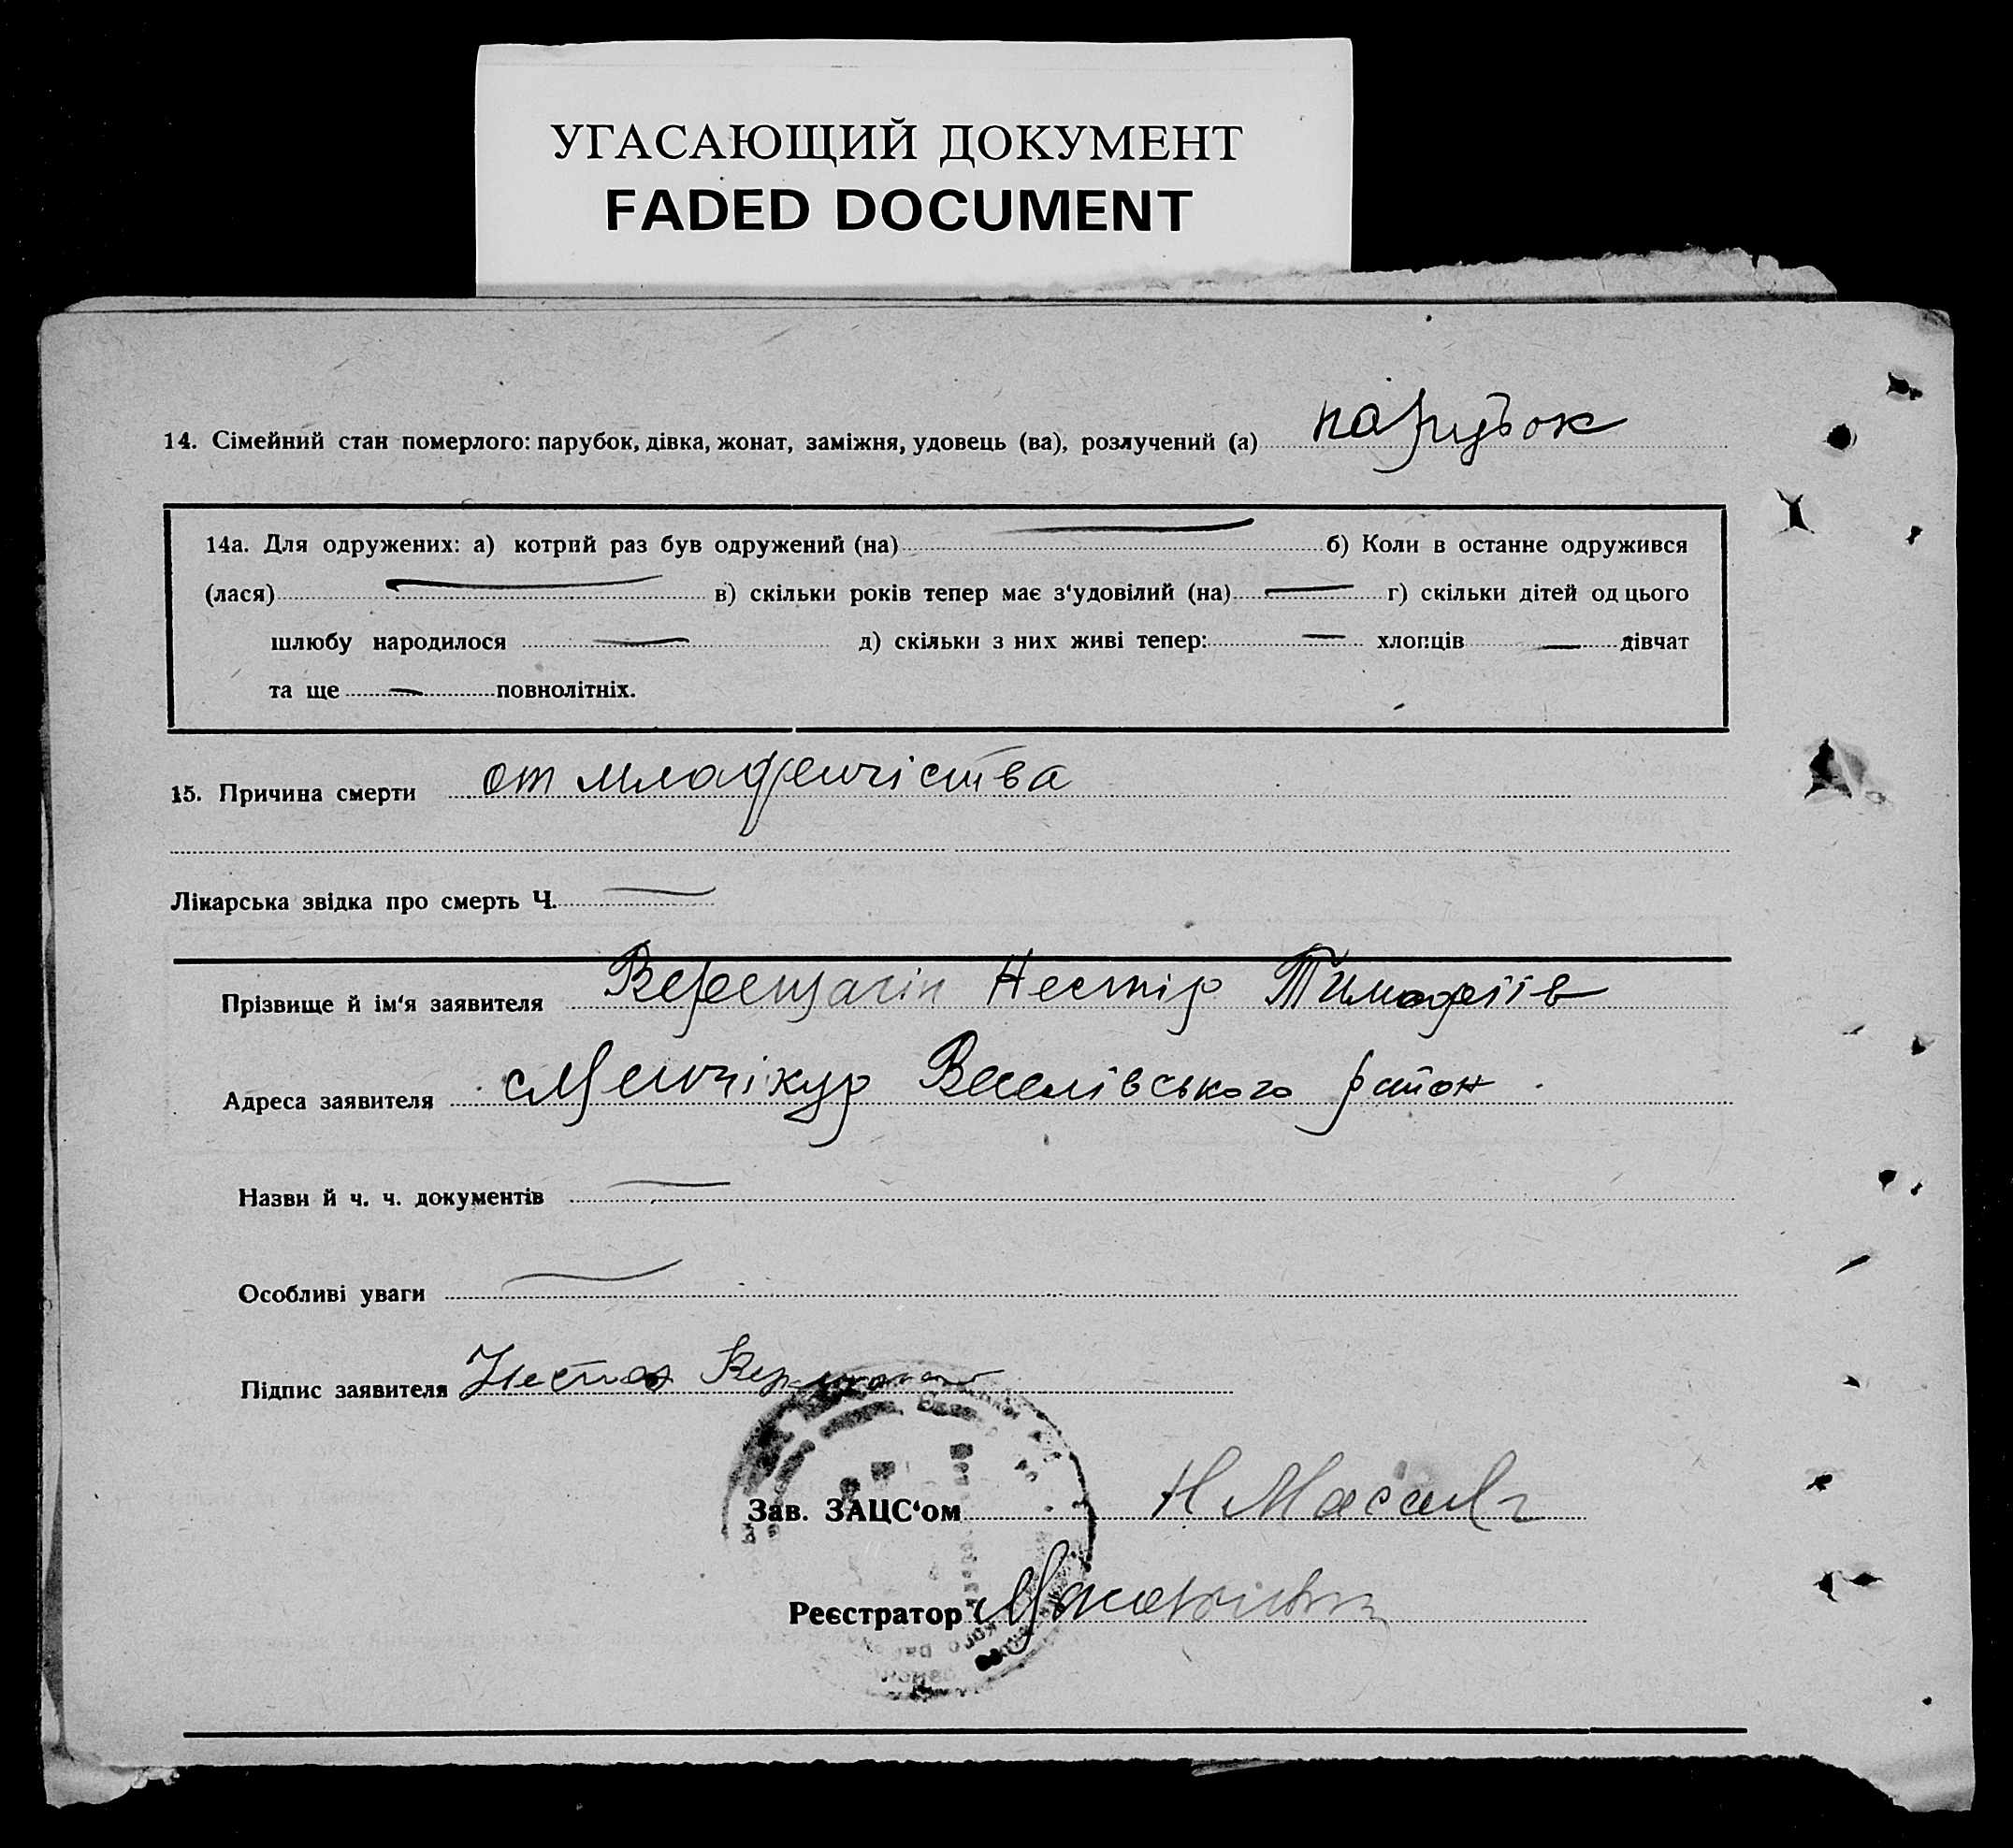 УГАСАЮЩИЙ ДОКУМЕНТ
FADED DOCUMENT
14. Сімейний стан померлого: парубок, дівка, жонат, заміжня, удовець (ва), розлучений (а) парубок
14а. Для одружених: а) котрий раз був одружений (на) — б) Коли в останне одружився
(лася) — в) скільки років тепер має з‘удовілий (на) — г) скільки дітей од цього
шлюбу народилося — д) скільки з них живі тепер: — хлопців — дівчат
та ще — повнолітніх.
15. Причина смерти от младенчіства
Лікарська звідка про смерть Ч. —
Прізвище й ім‘я заявителя Верещагін Нестір Тимофіїв
Адреса заявителя с Менчікур Веселівського район
Назви й ч. ч. документів —
Особливі уваги —
Підпис заявителя Нестор
Зав. ЗАЦС‘ом Н
Реєстратор